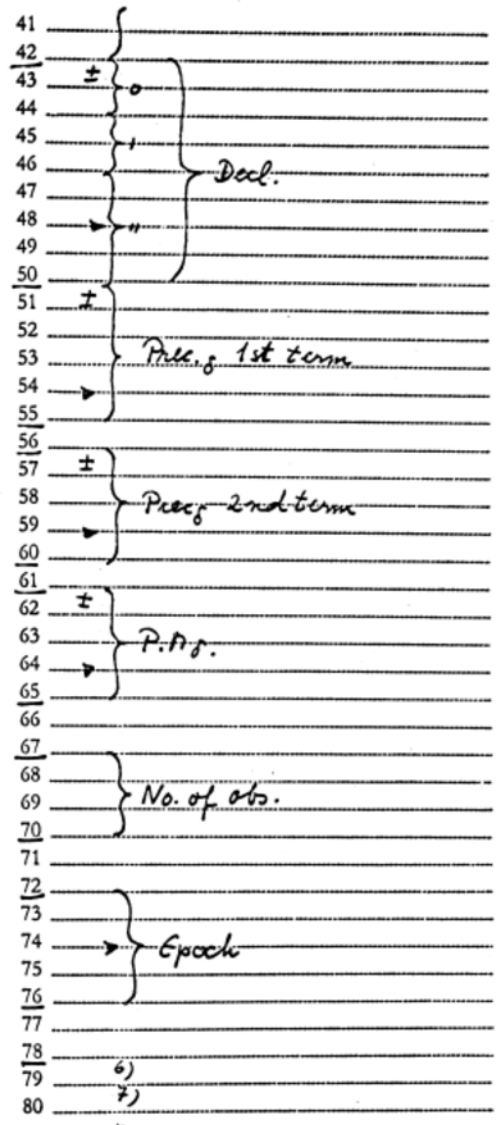 41
42
± 43 o
44
45 '
46 Decl.
47
48 "
49
50
± 51
52
53 Prec. δ 1st term
54
55
56
± 57
58 Prec δ 2nd term
59
60
61
± 62
63 P.M δ.
64
65
66
67
68
69 No. of obs.
70
71
72
73
74 Epoch
75
76
77
78
79 6)
80 7)